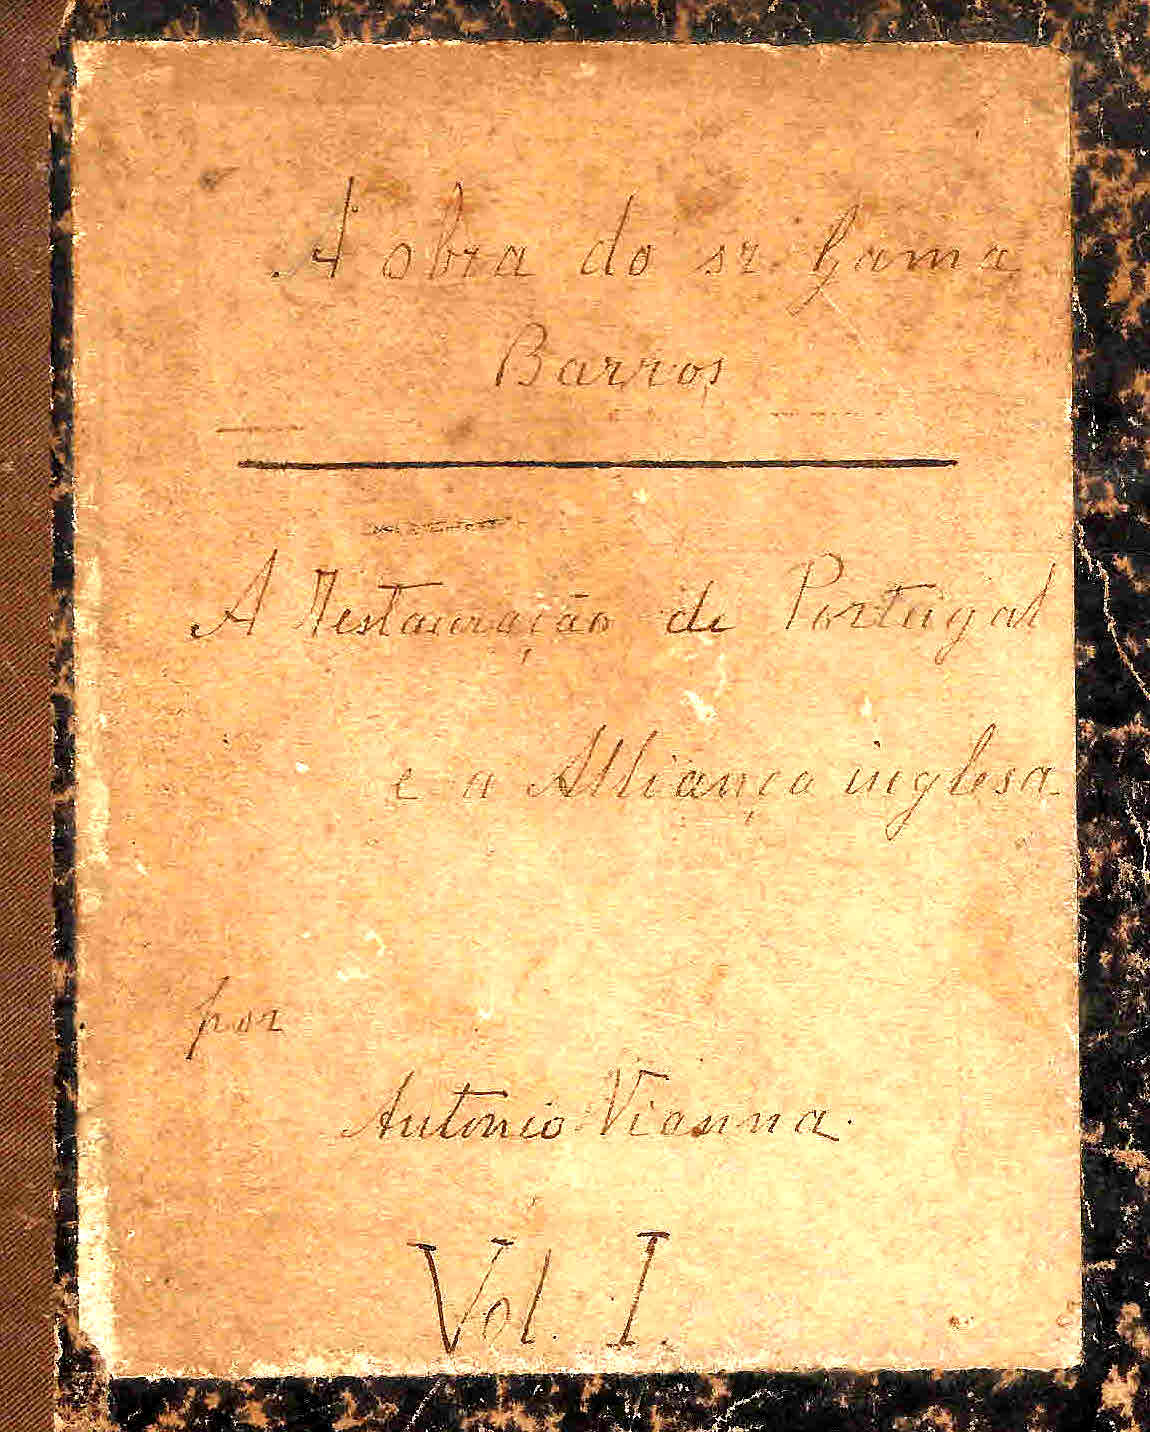 A obra do sr. Gama
Barros
A Restauração de Portugal
e a Alliança inglesa
por
Antonio Vianna.
Vol. I.